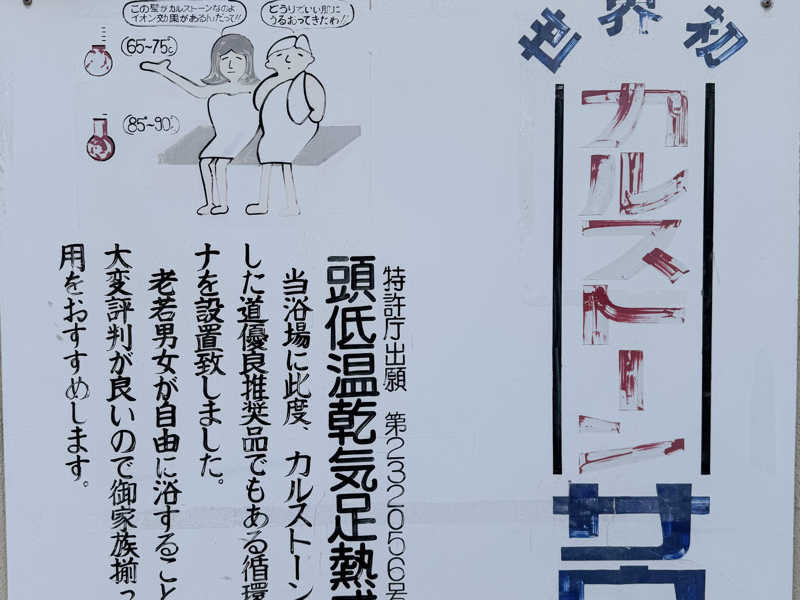 世界初
カルストーン
サロ
特許庁出願 第232056号
頭低温乾気足熱
当浴場に此度、カルストーン
した道優良推奨品でもある循環
ナを設置致しました。
老若男女が自由に浴すること
大変評判が良いので御家族揃っ
用をおすすめします。
この髪がカルストーンなのよ
イオン効果があるんだって!!
どうりでいい肌に
うるおってきたわ!!
(65~75℃)
(85~90℃)